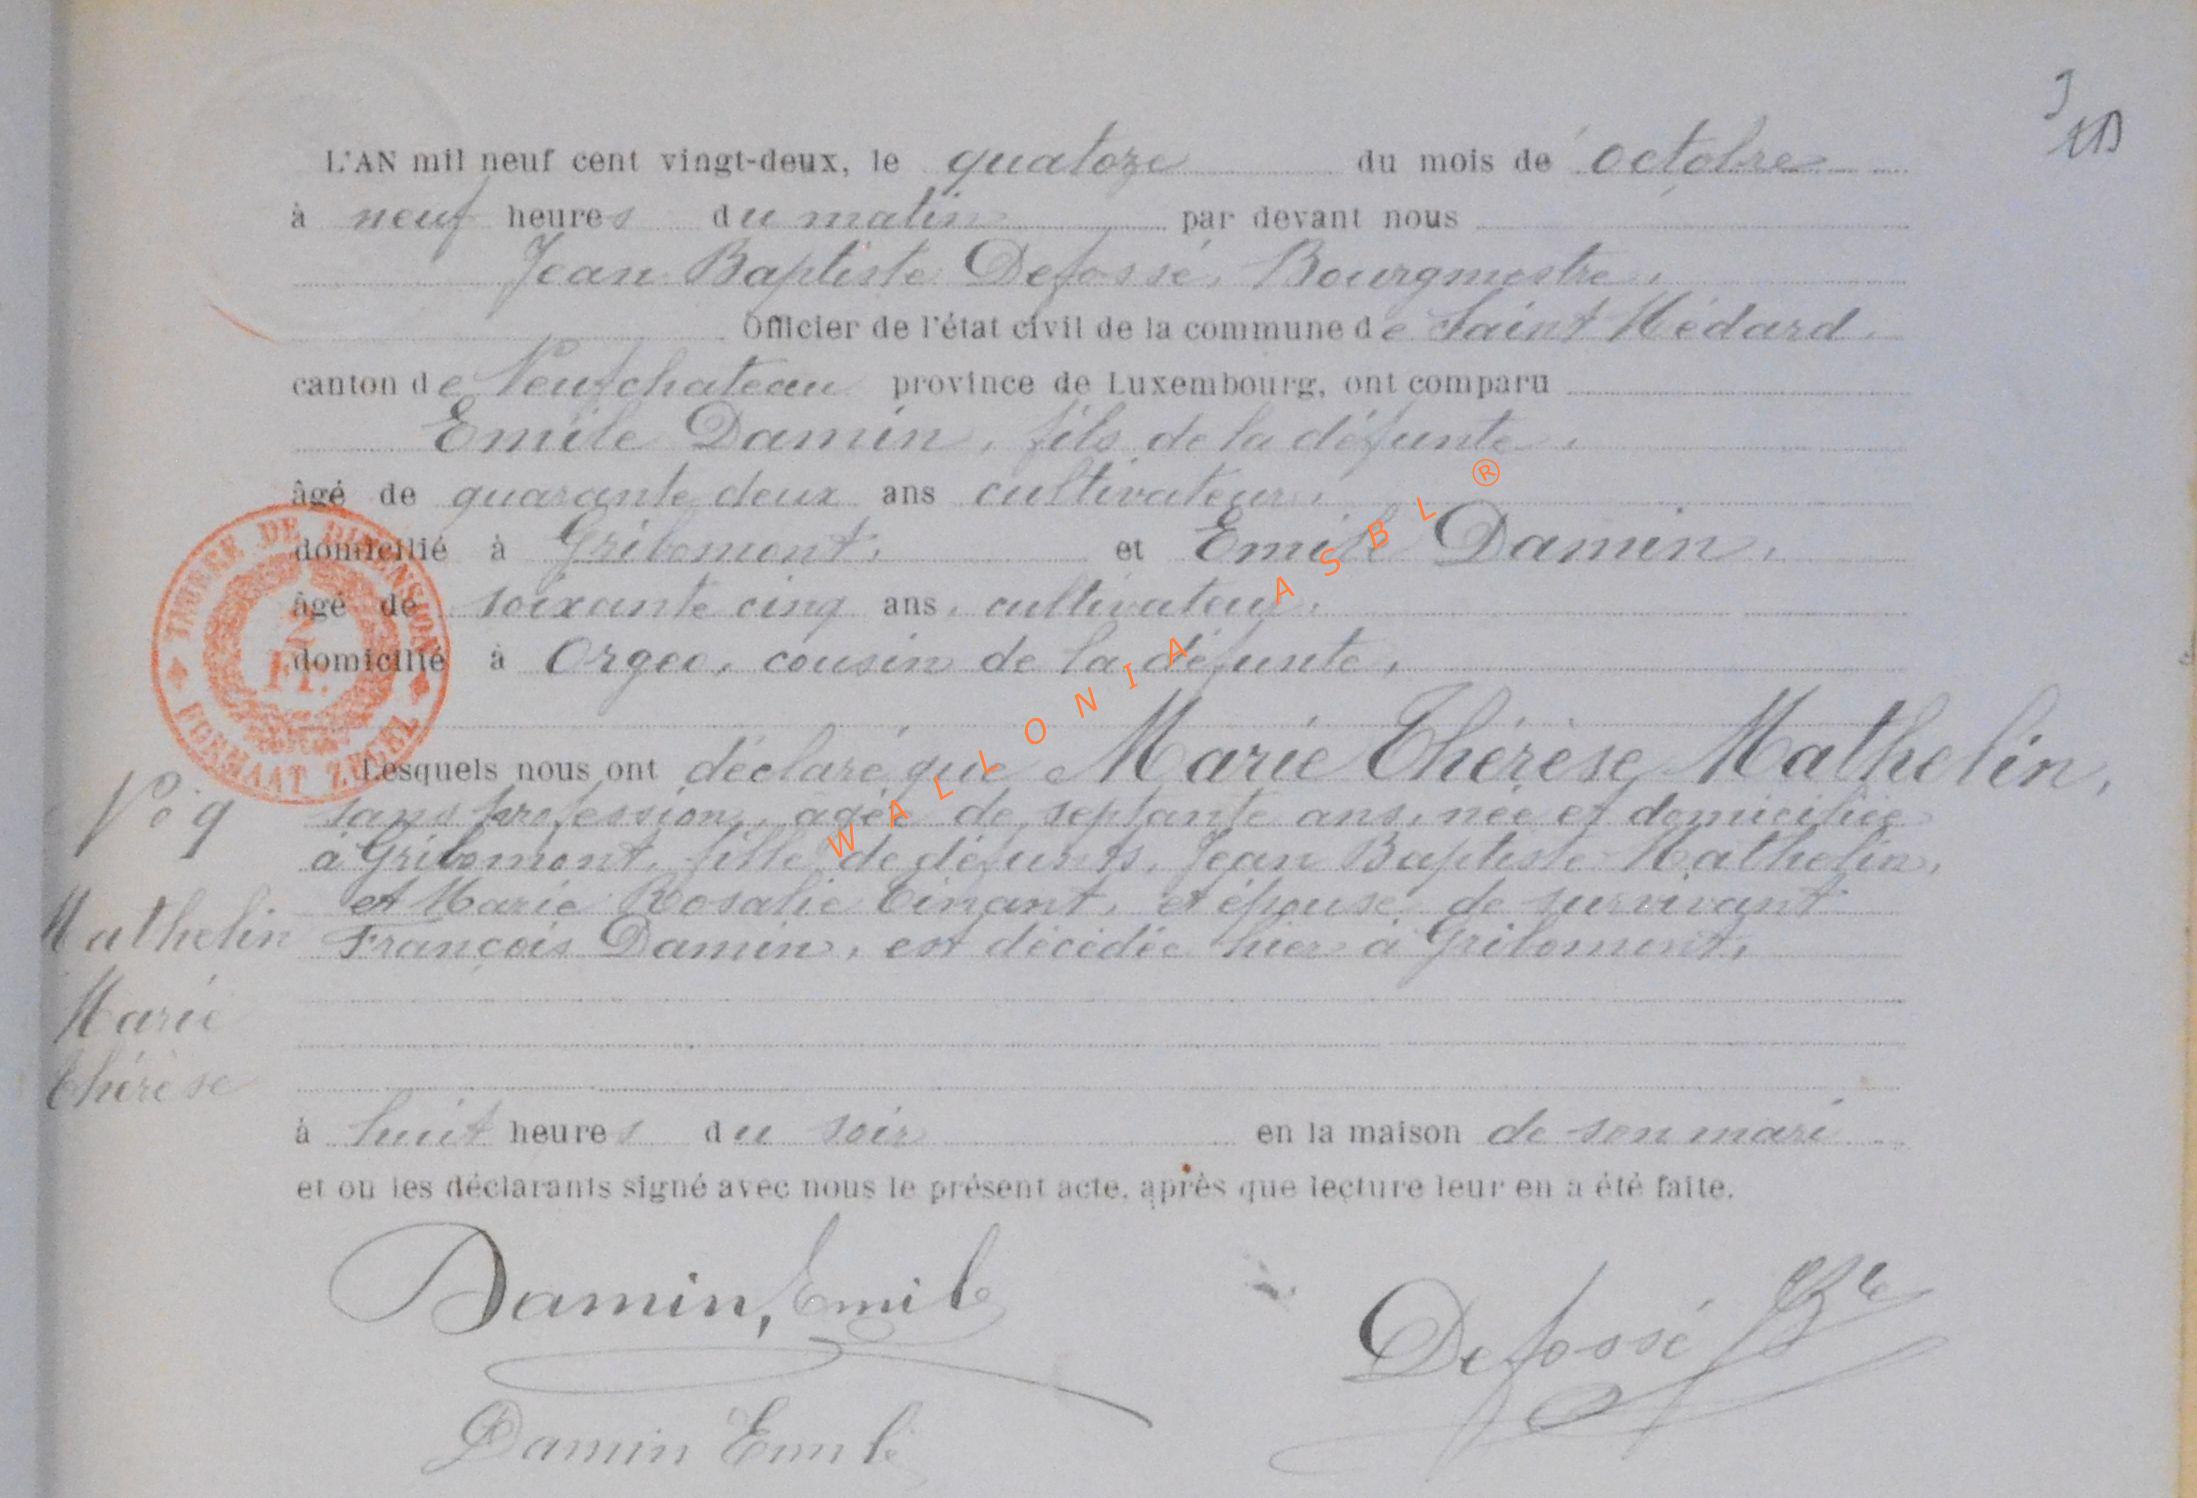 L'AN mil neuf cent vingt-deux, le quatoze du mois de octobre
à neuf heures du matin par devant nous
Jean Baptiste Defossé, Bourgmestre,
Officier de l'état civil de la commune de Saint Médard,
canton de Neufchateau province de Luxembourg, ont comparu
Emile Damin, fils de la défunte,
âgé de quarante deux ans cultivateur,
domicilié à Gribomont, et Emile Damin,
âgé de soixante cinq ans, cultivateur,
domicilié à Orgeo, cousin de la défunte,
Lesquels nous ont déclaré que Marie Thérèse Mathelin,
sans profession, agée de septante ans, née et domiciliée
à Gribomont, fille de défunts, Jean Baptiste Mathelin,
et Marie Rosalie Tinant, et épouse de survivant
François Damin, est décédée hier à Gribomont,
à huit heures du soir en la maison de son mari
et ou les déclarants signé avec nous le présent acte, après que lecture leur en a été faite.
N° 9
Mathelin
Marie
Thérèse
TIMBRE DE DIMENSION
2
Fr.
FORMAAT ZEGEL
WALLONIA ASBL ®
Damin, Emile
Defossé JBte
Damin Emile